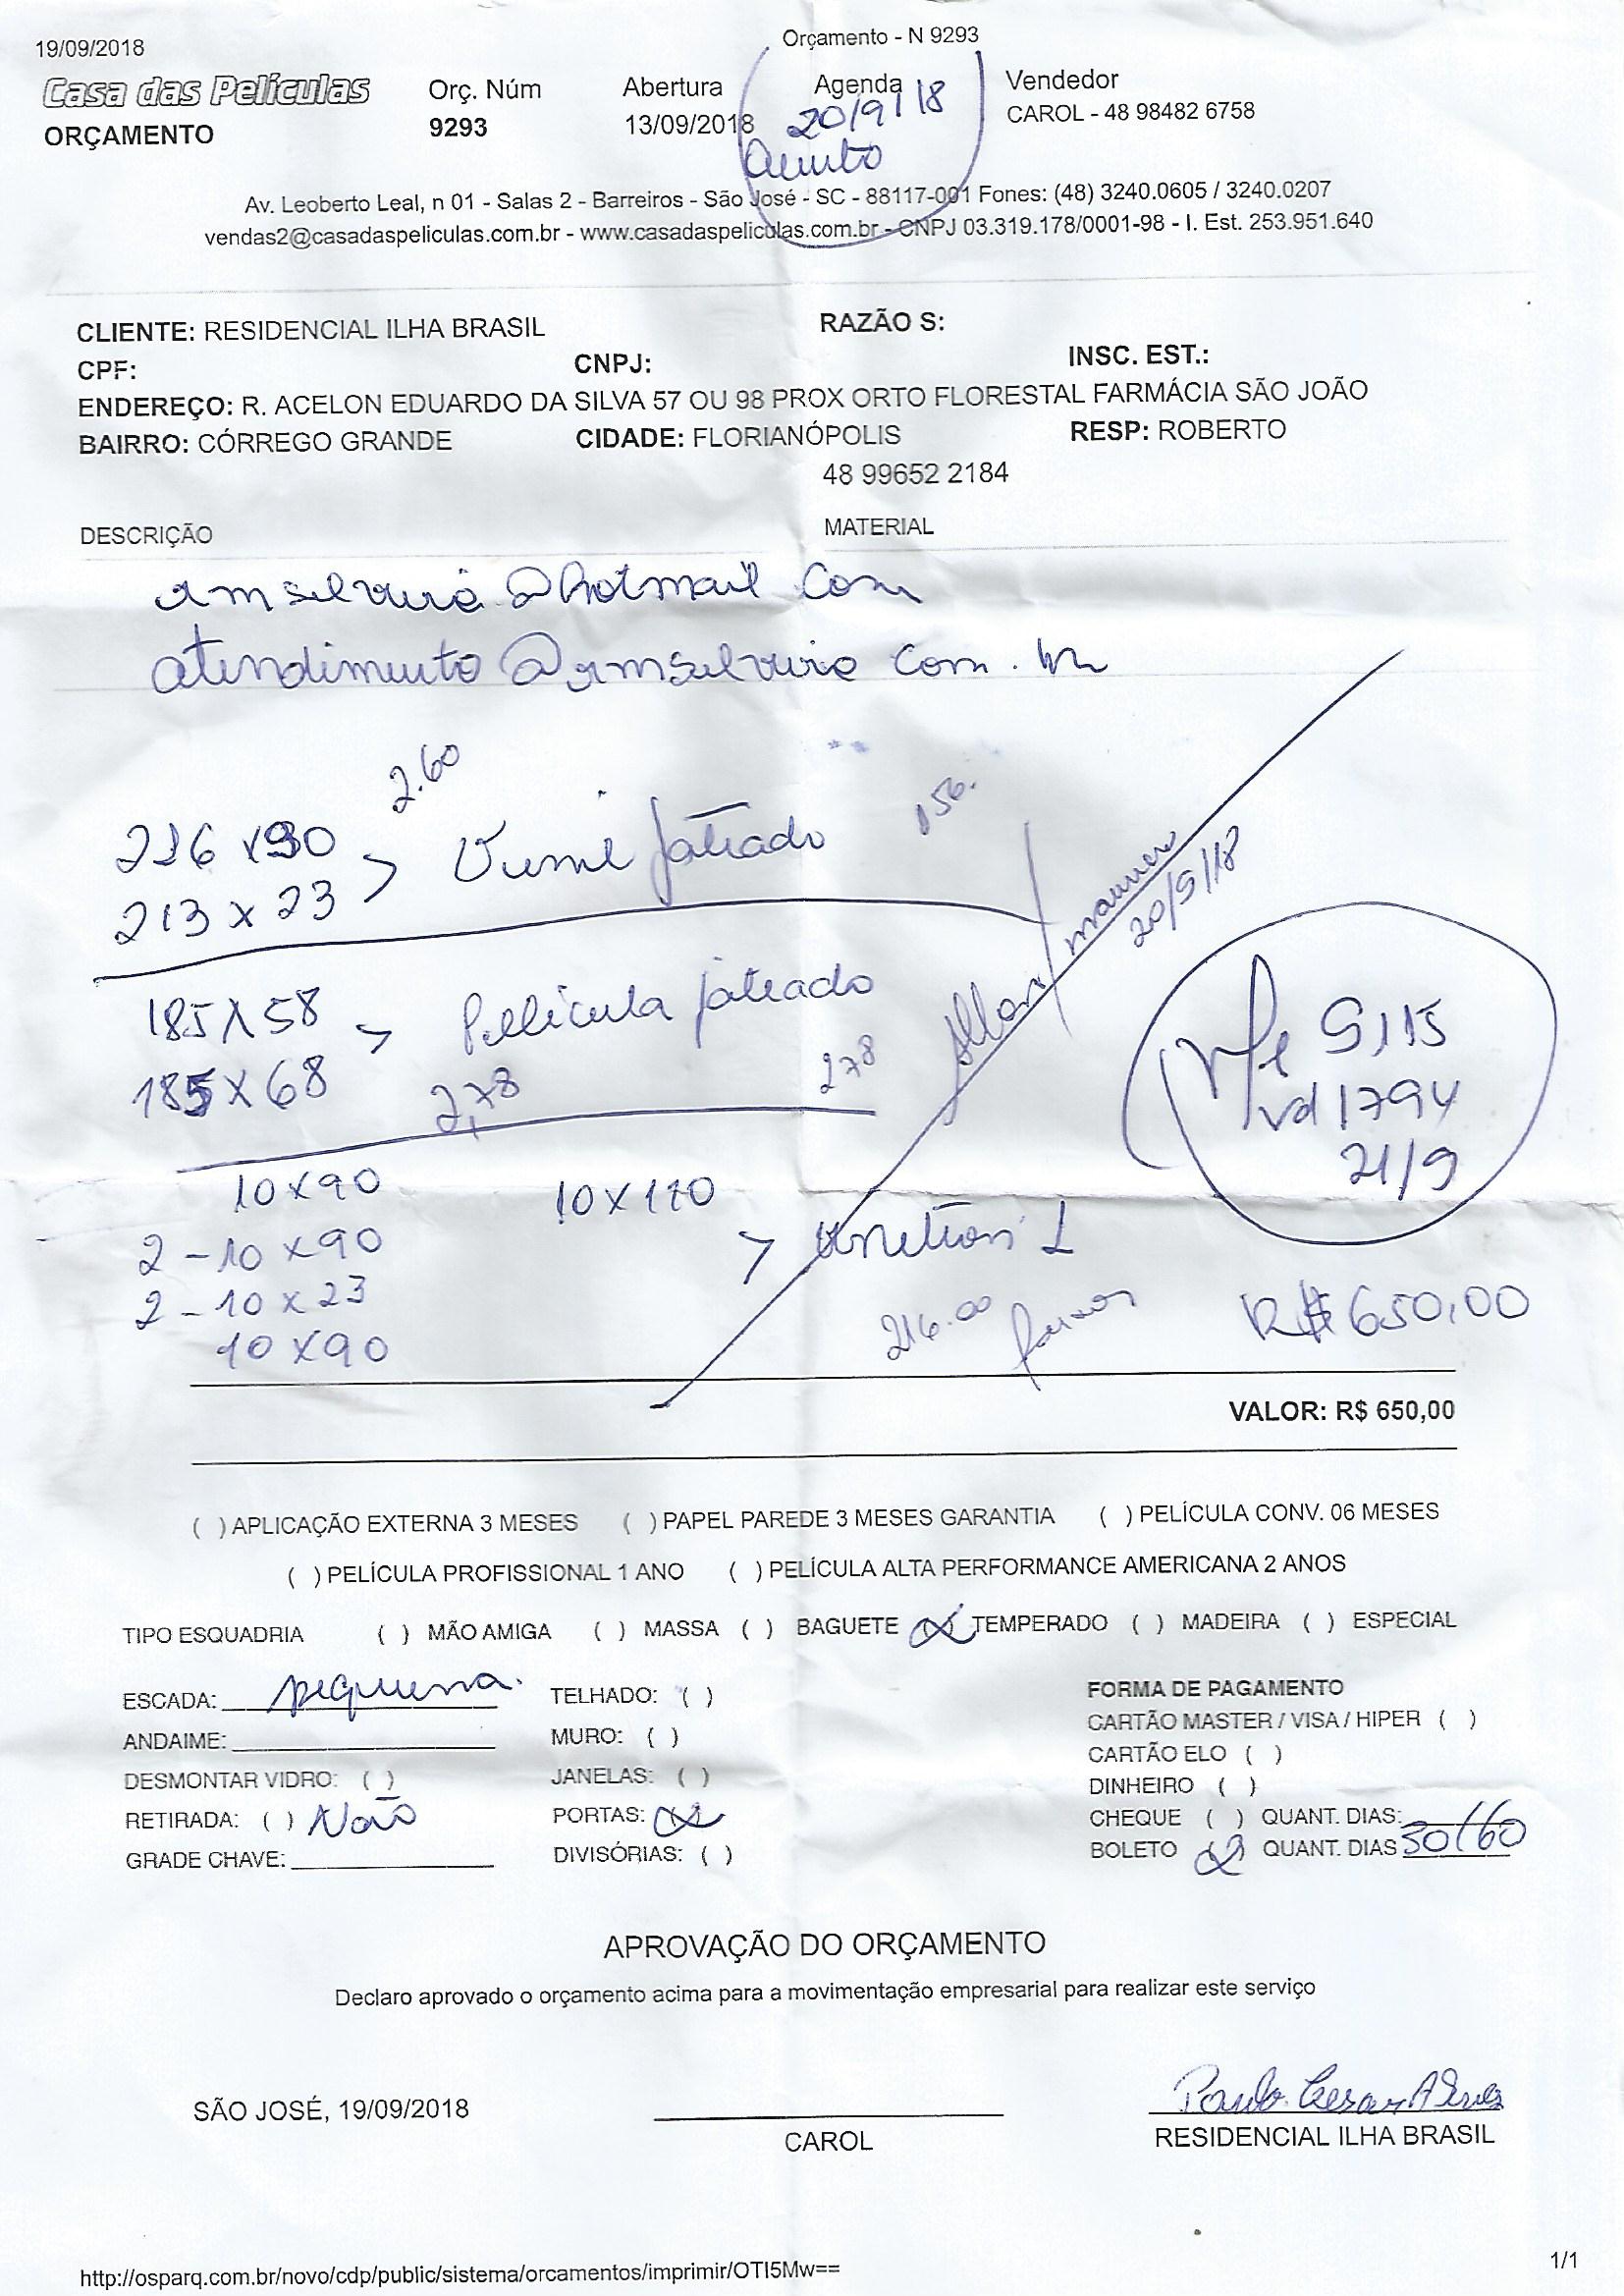 19/09/2018
Orçamento - N 9293
Casa das Películas
ORÇAMENTO
Orç. Núm
9293
Abertura
13/09/2018
Agenda
20/9/18
Vendedor
CAROL - 48 98482 6758
Av. Leoberto Leal, n 01 - Salas 2 - Barreiros - São José - SC - 88117-001 Fones: (48) 3240.0605 / 3240.0207
vendas2@casadaspeliculas.com.br - www.casadaspeliculas.com.br - CNPJ 03.319.178/0001-98 - I. Est. 253.951.640
CLIENTE: RESIDENCIAL ILHA BRASIL RAZÃO S:
CPF: CNPJ: INSC. EST.:
ENDEREÇO: R. ACELON EDUARDO DA SILVA 57 OU 98 PROX ORTO FLORESTAL FARMÁCIA SÃO JOÃO
BAIRRO: CÓRREGO GRANDE CIDADE: FLORIANÓPOLIS RESP: ROBERTO
48 99652 2184
DESCRIÇÃO MATERIAL
2.60
216 x 90 > jateado 156.
213 x 23
185 x 58 > Pelicula jateado
185 x 68 2,78 278
20/9/18
Nfe 9115
vd 1794
21/9
10 x 90 10 x 110
2 - 10 x 90 >
2 - 10 x 23
10 x 90
216.00 faixas R$ 650,00
VALOR: R$ 650,00
( ) APLICAÇÃO EXTERNA 3 MESES ( ) PAPEL PAREDE 3 MESES GARANTIA ( ) PELÍCULA CONV. 06 MESES
( ) PELÍCULA PROFISSIONAL 1 ANO ( ) PELÍCULA ALTA PERFORMANCE AMERICANA 2 ANOS
TIPO ESQUADRIA ( ) MÃO AMIGA ( ) MASSA ( ) BAGUETE (X) TEMPERADO ( ) MADEIRA ( ) ESPECIAL
ESCADA: pequena. TELHADO: ( )
ANDAIME: MURO: ( )
DESMONTAR VIDRO: ( ) JANELAS: ( )
RETIRADA: ( ) Não PORTAS: (X)
GRADE CHAVE: DIVISÓRIAS: ( )
FORMA DE PAGAMENTO
CARTÃO MASTER / VISA / HIPER ( )
CARTÃO ELO ( )
DINHEIRO ( )
CHEQUE ( ) QUANT. DIAS:
BOLETO (X) QUANT. DIAS 30/60
APROVAÇÃO DO ORÇAMENTO
Declaro aprovado o orçamento acima para a movimentação empresarial para realizar este serviço
SÃO JOSÉ, 19/09/2018
CAROL
Paulo Cesar
RESIDENCIAL ILHA BRASIL
http://osparq.com.br/novo/cdp/public/sistema/orcamentos/imprimir/OTI5Mw==
1/1